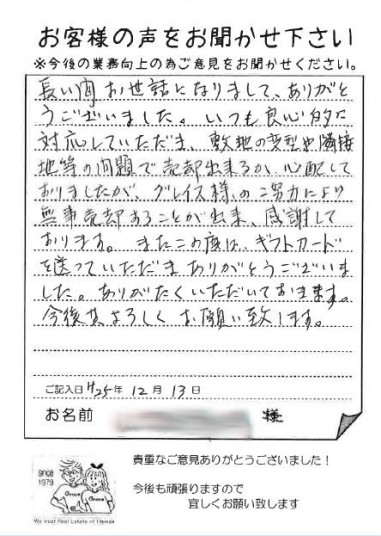 お客様の声をお聞かせ下さい
※今後の業務向上の為ご意見をお聞かせください。
長い間お世話になりまして、ありがと
うございました。いつも良心的に
対応していただき、敷地の変型や隣接
地等の問題で売却出来るか、心配して
おりましたが、グレイス様のご努力により
無事売却することが出来、感謝して
おります。またこの度は、ギフトカード
を送っていただきありがとうございま
した。ありがたくいただいておきます。
今後共よろしくお願い致します。
ご記入日 H25年 12月 13日
お名前 様
貴重なご意見ありがとうございました！
今後も頑張りますので
宜しくお願い致します
since
1979
We trust Real Estate of